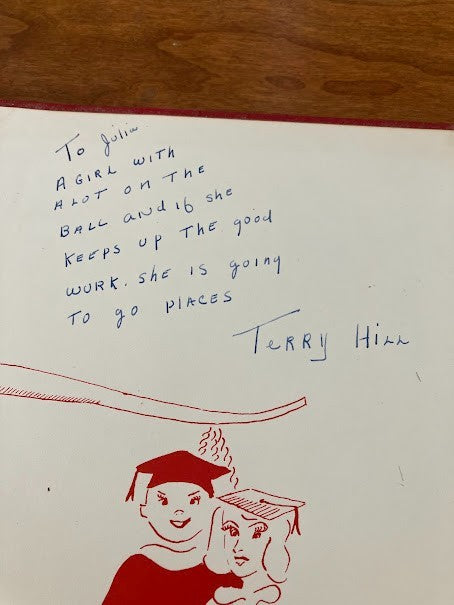 To Julia
A GIRL WITH
A LOT ON THE
BALL and if she
KEEPS UP THE good
WURK. SHE IS going
TO go PlACES
TERRY HILL